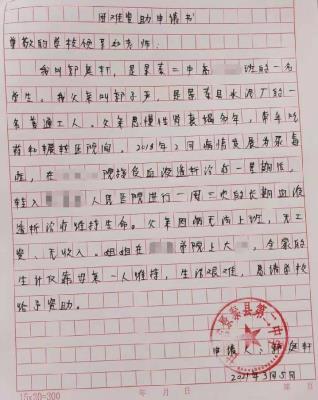 困难资助申请书
尊敬的学校领导和老师：
我叫郭庭轩，是景泰二中高 班的一名
学生。我父亲叫郭子芳，是景泰县水泥厂的一
名普通工人。父亲患慢性肾衰竭多年，常年吃
药和辗转医院间。2018年2月病情发展为尿毒
症，在 院接受血液透析治疗一星期后，
转入 人民医院进行一周三次的长期血液
透析治疗维持生命。父亲因病无法上班，无工
资、无收入。姐姐在 学院上大 ，全家的
生计仅靠母亲一人维持，生活艰难，恳请学校
给予资助。
景泰县第二中
申请人：郭庭轩
2021年3月5日
15×20=300
年 月 日